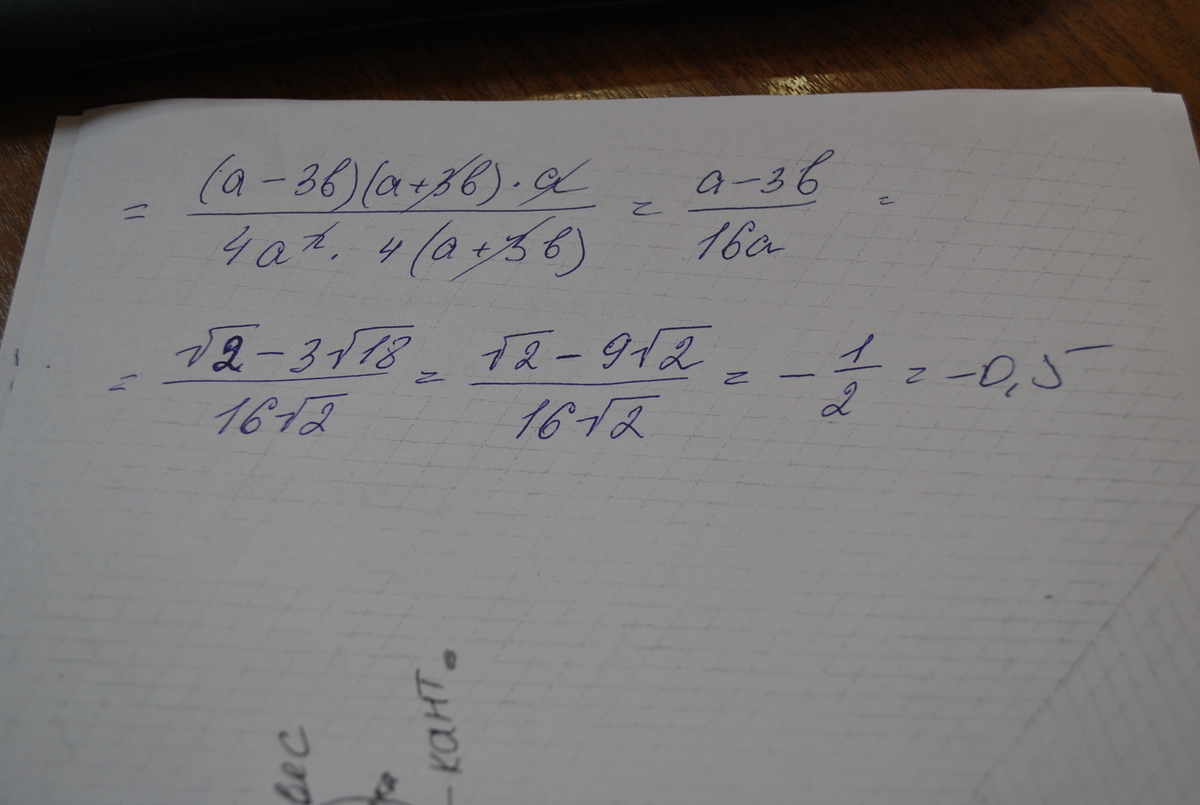 = (a - 3b)(a + 3b) · a / 4a² · 4(a + 3b) = a - 3b / 16a =
= √2 - 3√18 / 16√2 = √2 - 9√2 / 16√2 = - 1/2 = -0,5
вес
- кант.